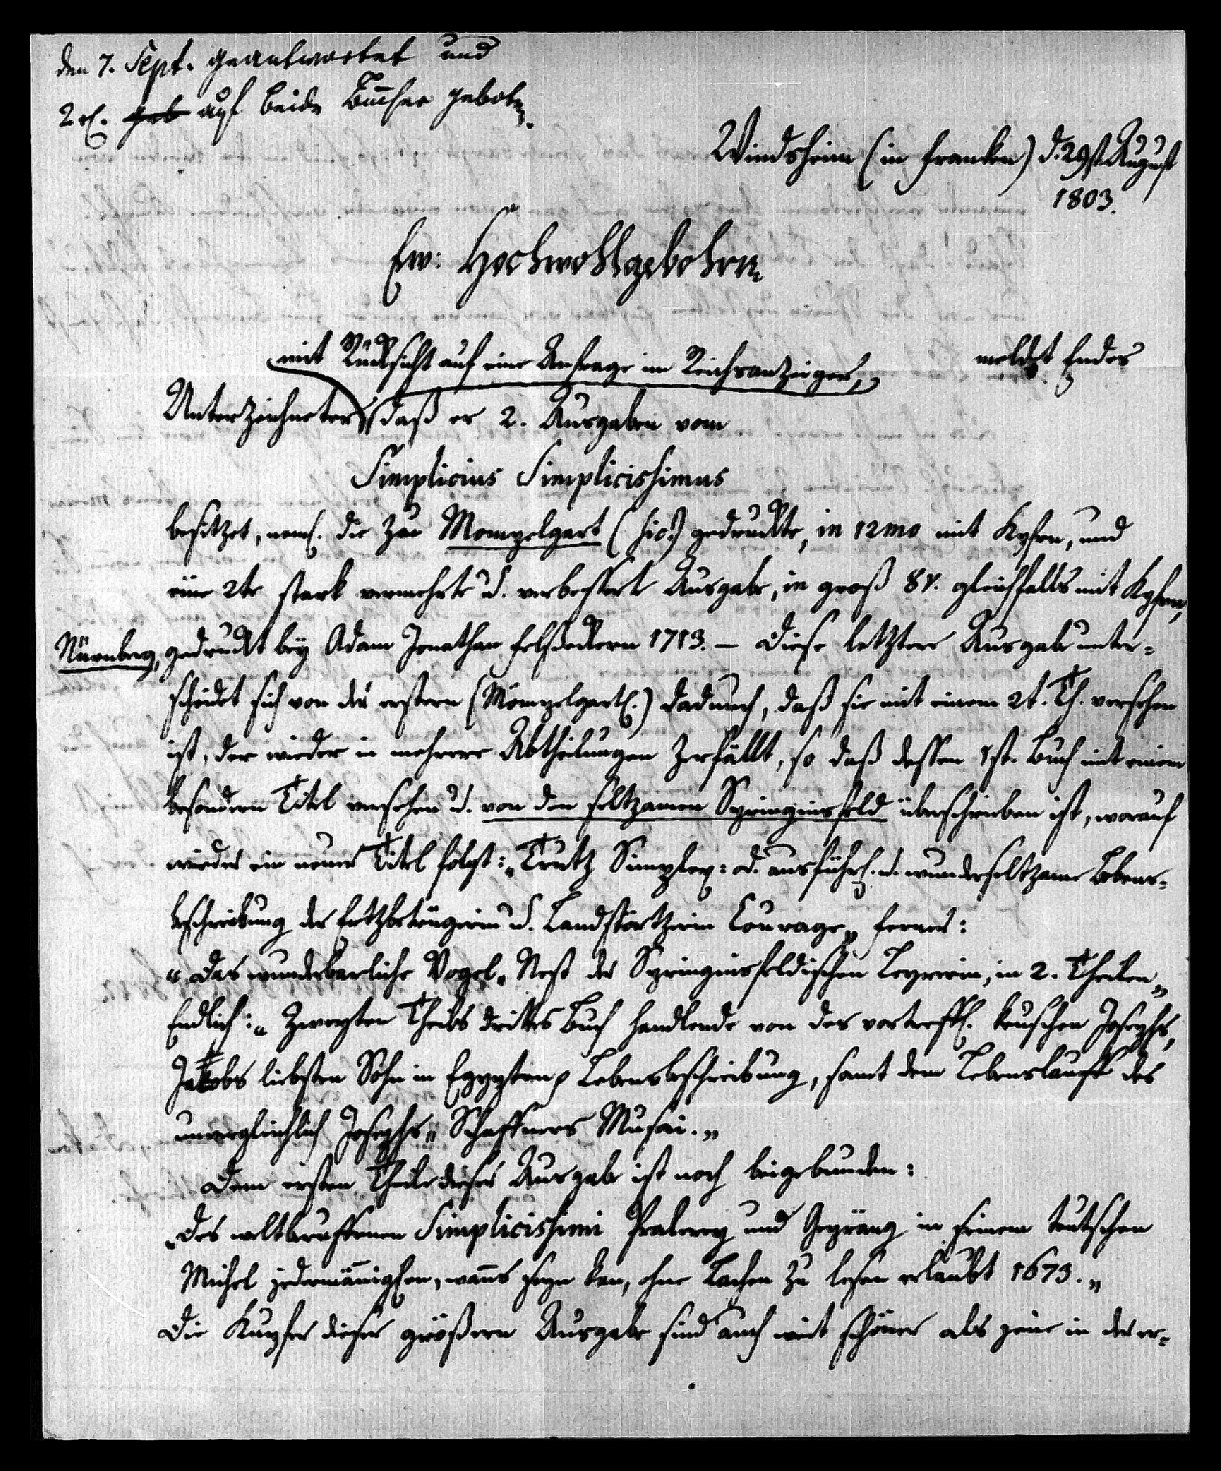 den 7. Sept. geantwortet und
2 rl. geb auf beide Bücher geboten.
Windsheim (in Franken) d. 29st. August
1803.
Ew: Hochwohlgebohrn
mit Rücksicht auf eine Anfrage im Reichsanzeiger, meldet Endes
Unterzeichneter, daß er 2. Ausgaben vom
Simplicius Simplicissimus
besitzet, neml. die zu Mompelgart (sic!) gedruckte, in 12mo mit Kpfrn, und
eine 2te stark vermehrte u. verbesserte Ausgabe, in groß 8v. gleichfalls mit Kpfrn,
Nürnberg, gedruckt bey Adam Jonathan Felsseckern 1713. — Diese letztere Ausgabe unter-
scheidet sich von der erstern (Mömpelgartl.) dadurch, daß sie mit einem 2t. Th. versehen
ist, der wieder in mehrere Abtheilungen zerfällt, so daß dessen 1st. Buch mit einem
besondern Titel versehen u. von dem seltzamen Springinsfeld überschrieben ist, worauf
wieder ein neuer Titel folgt: „Trutz Simplex: od. ausführl. u. wunderseltzame Lebens-
beschreibung der Ertzbetrügerin u. Landstörtzerin Courage„ ferner:
„Das wunderbarliche Vogel-Nest der Springinsfeldischen Leyrerin, in 2. Theilen„
Endlich: „Zweyten Theils drittes Buch handlende von des vortreffl. keuschen Josephs,
Jakobs liebsten Sohn in Egypten Lebensbeschreibung, samt dem Lebenslauff des
unvergleichlich Josephs„ Schaffners Musai.„
Dem ersten Theile dieser Ausgabe ist noch beigebunden:
„Des weltberuffenen Simplicissimi Pralerey und Gepräng in seinem teutschen
Michel jedermänniglichen, wanns seyn kan, ohne Lachen zu lesen erlaubt 1673.„
Die Kupfer dieser größern Ausgabe sind auch weit schöner als jene in der er-